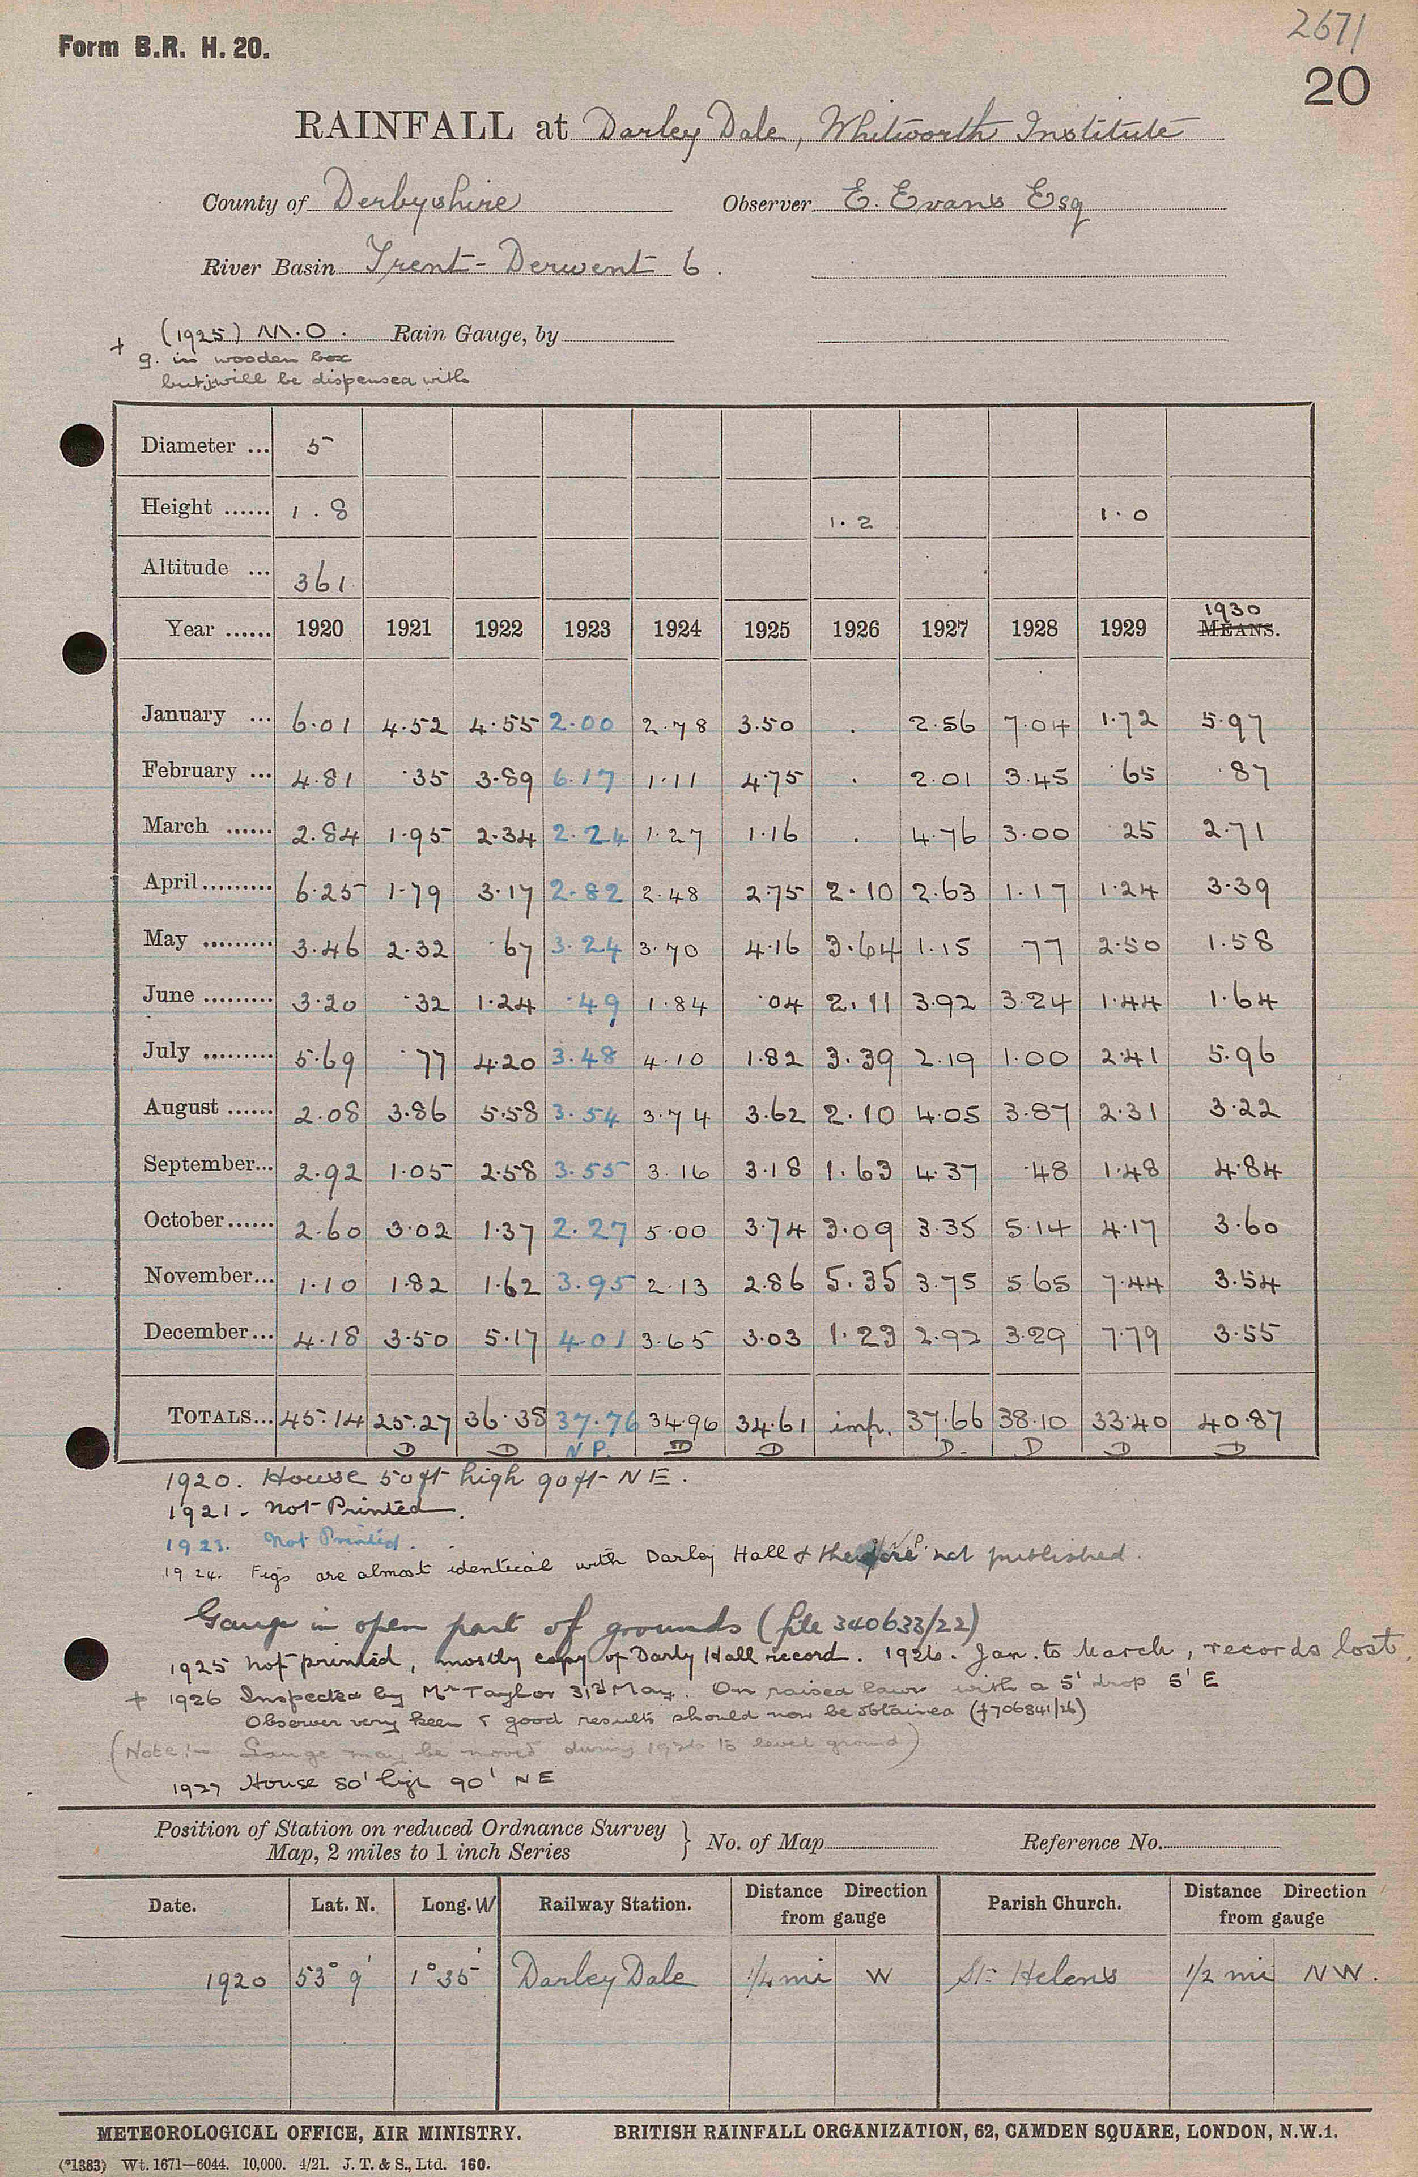 2671
Form B.R. H. 20.
20
RAINFALL at Darley Dale, Whitworth Institute
County of Derbyshire Observer E. Evans Esq
River Basin Trent - Derwent 6.
+ (1925) M.O. Rain Gauge, by
g. in wooden box
but will be dispensed with
Diameter ... 5
Height ...... 1.8 1.2 1.0
Altitude ... 361
Year ...... 1920 1921 1922 1923 1924 1925 1926 1927 1928 1929 1930 MEANS.
January ... 6.01 4.52 4.55 2.00 2.78 3.50 . 2.56 7.04 1.72 5.97
February ... 4.81 .35 3.89 6.17 1.11 4.75 . 2.01 3.45 .65 .87
March ...... 2.84 1.95 2.34 2.24 1.27 1.16 . 4.76 3.00 25 2.71
April ......... 6.25 1.79 3.17 2.82 2.48 2.75 2.10 2.63 1.17 1.24 3.39
May ......... 3.46 2.32 .67 3.24 3.70 4.16 3.64 1.15 77 2.50 1.58
June ......... 3.20 .32 1.24 .49 1.84 .04 2.11 3.92 3.24 1.44 1.64
July ......... 5.69 .77 4.20 3.48 4.10 1.82 3.39 2.19 1.00 2.41 5.96
August ...... 2.08 3.86 5.58 3.54 3.74 3.62 2.10 4.05 3.87 2.31 3.22
September... 2.92 1.05 2.58 3.55 3.16 3.18 1.63 4.37 .48 1.48 4.84
October...... 2.60 3.02 1.37 2.27 5.00 3.74 3.09 3.35 5.14 4.17 3.60
November... 1.10 1.82 1.62 3.95 2.13 2.86 5.35 3.75 5.65 7.44 3.54
December... 4.18 3.50 5.17 4.01 3.65 3.03 1.23 2.92 3.29 7.79 3.55
TOTALS... 45.14 25.27 36.38 37.76 34.96 34.61 imp. 37.66 38.10 33.40 40.87
D D N.P. D D D. D D D
1920. House 50ft high 90ft NE.
1921. Not Printed.
1923. Not Printed.
1924. Figs are almost identical with Darley Hall & therefore not published.
Gauge in open part of grounds (file 340633/22)
1925 not printed, mostly copy of Darly Hall record. 1926. Jan. to March, records lost.
+ 1926 Inspected by Mr Taylor 31st May. On raised lawn with a 5' drop 5' E
Observer very keen & good results should now be obtained (f 706841/26)
(Note:- Gauge may be moved during 1926 to level ground)
1927 House 80' high 90' NE
Position of Station on reduced Ordnance Survey Map, 2 miles to 1 inch Series } No. of Map Reference No.
Date. Lat. N. Long. W Railway Station. Distance Direction from gauge Parish Church. Distance Direction from gauge
1920 53° 9' 1° 35' Darley Dale 1/4 mi W St. Helens 1/2 mi NW.
METEOROLOGICAL OFFICE, AIR MINISTRY. BRITISH RAINFALL ORGANIZATION, 62, CAMDEN SQUARE, LONDON, N.W.1.
(*1383) Wt. 1671—6044. 10,000. 4/21. J. T. & S., Ltd. 160.